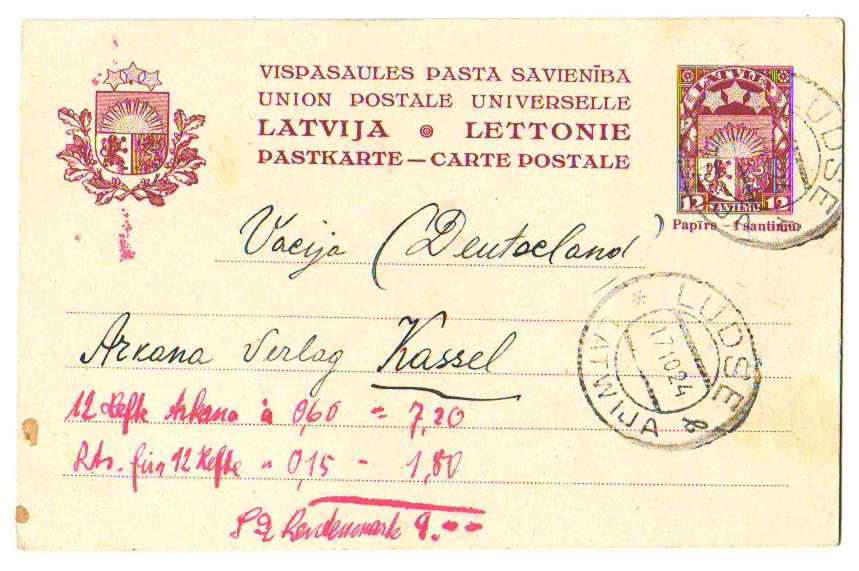 VISPASAULES PASTA SAVIENĪBA
UNION POSTALE UNIVERSELLE
LATVIJA ◎ LETTONIE
PASTKARTE — CARTE POSTALE
LATVIJA
12 SANTIMU 12
Papīrs - 1 santims
LUDSE
Vacija (Deutocland)
* LUDSE
17 10 24
LATWIJA
Arkana Verlag Kassel
12 Hefte Arkana à 0,60 = 7,20
für 12 Hefte " 0,15 - 1,80
Rentenmark 9.--